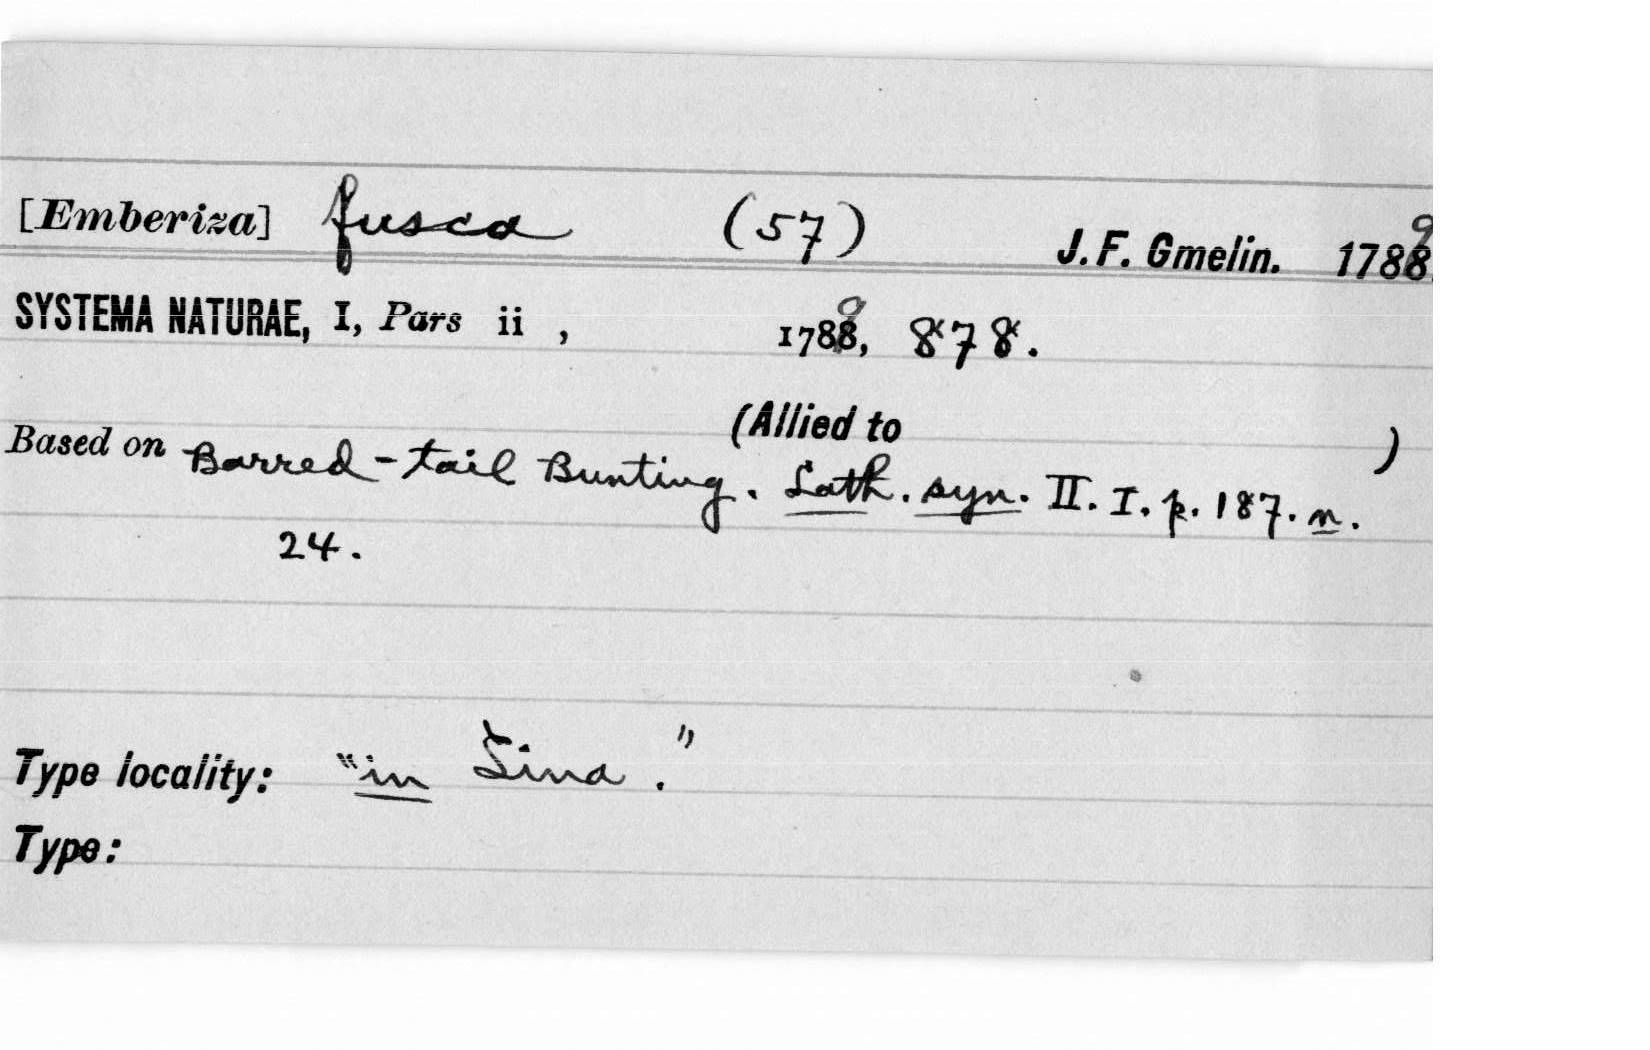 [Emberiza] fusca (57) J. F. Gmelin. 1789
SYSTEMA NATURAE, I, Pars ii , 1789, 878.
(Allied to )
Based on Barred-tail Bunting. Lath. syn. II. I. p. 187. n.
24.
Type locality: "in Sina."
Type: